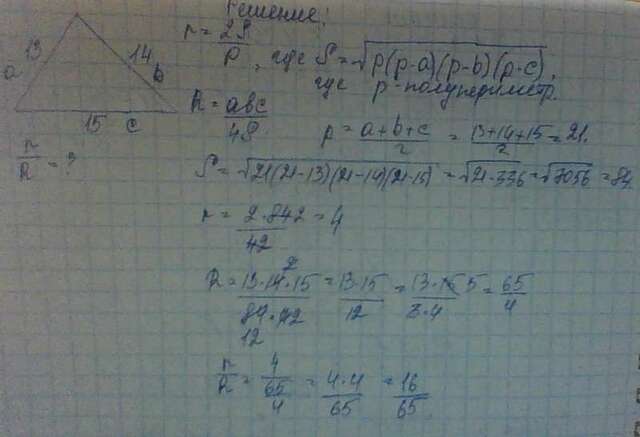 Решение:
13
14
a
b
15 c
r/R = ?
r = 2S/P, где S = √p(p-a)(p-b)(p-c),
где p - полупериметр.
R = abc/4S
p = a+b+c/2 = 13+14+15/2 = 21.
S = √21(21-13)(21-14)(21-15) = √21·336 = √7056 = 84.
r = 2·84/42 = 4
R = 13·14·15/84·4 = 13·15/12 = 13·15 5/3·4 = 65/4
12
r/R = 4/65/4 = 4·4/65 = 16/65.